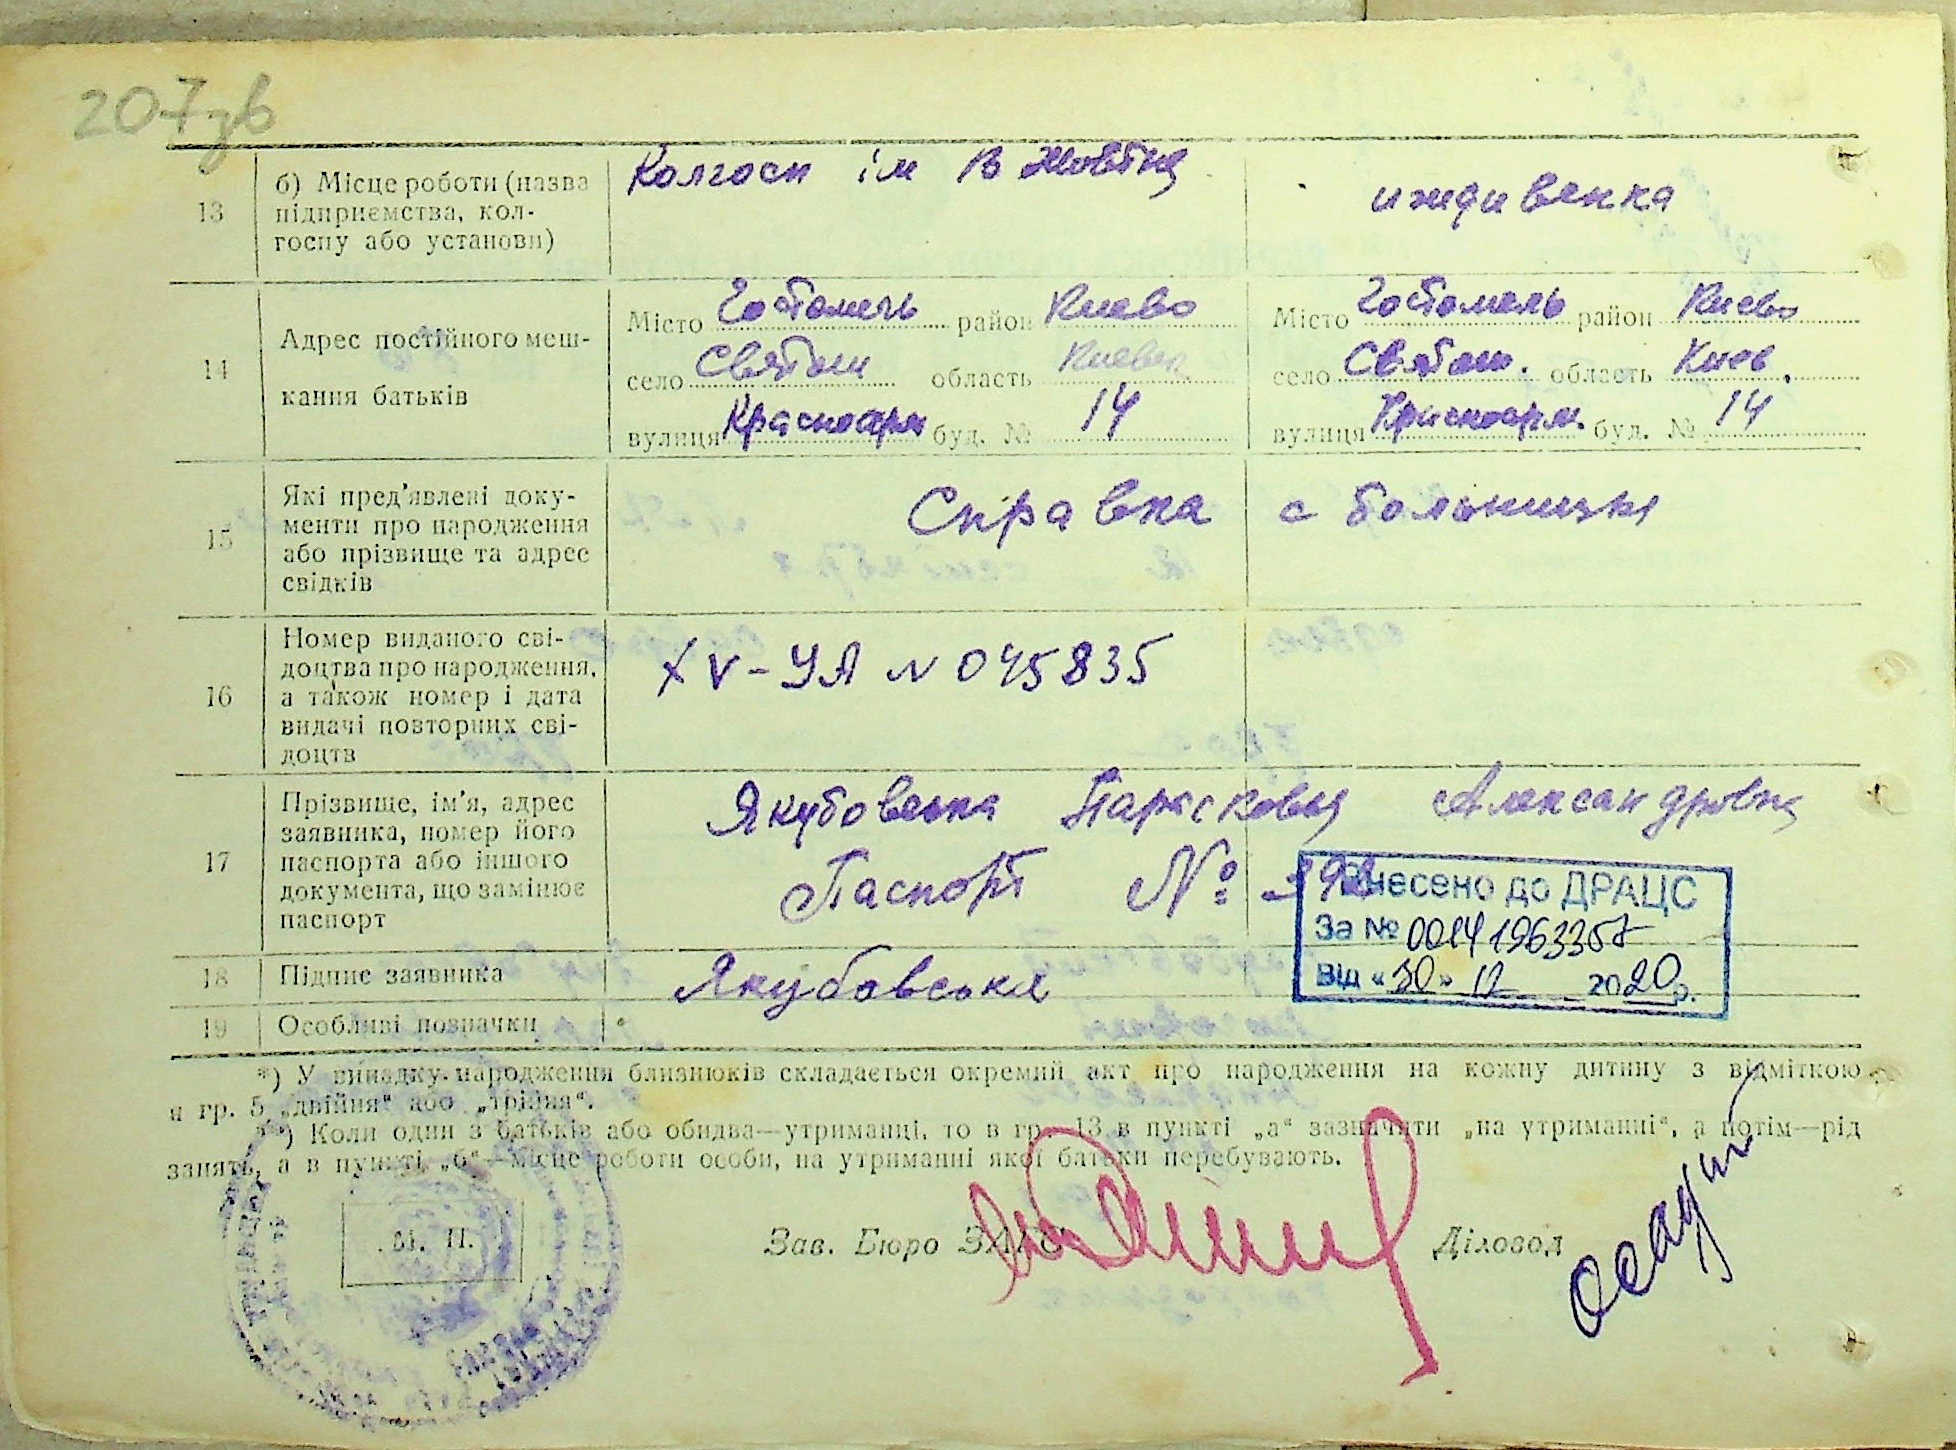 207зв
13
б) Місце роботи (назва
підприємства, кол-
госпу або установи)
Колгосп ім В Жовтня
иждивенка
14
Адрес постійного меш-
кання батьків
Місто Гостомель район Киево
село Святош область Киевск
вулиця Красноарм буд. № 14
Місто Гостомель район Киево
село Святош. область Киев.
вулиця Красноарм. буд. № 14
15
Які пред'явлені доку-
менти про народження
або прізвище та адрес
свідків
Справка с больницы
16
Номер виданого сві-
доцтва про народження,
а також номер і дата
видачі повторних сві-
доцтв
XV-УА N 045835
17
Прізвище, ім'я, адрес
заявника, номер його
паспорта або іншого
документа, що замінює
паспорт
Якубовська Парасковья Александровна
Паспорт №
Внесено до ДРАЦС
За № 00141963357
Від «30» 12 2020р.
18
Підпис заявника
Якубовська
19
Особливі позначки
*) У випадку народження близнюків складається окремий акт про народження на кожну дитину з відміткою
в гр. 5 „двійня“ або „трійня“.
**) Коли один з батьків або обидва—утриманці, то в гр. 13 в пункті „а“ зазначити „на утриманні“, а потім—рід
занять, а в пункті „б“—місце роботи особи, на утриманні якої батьки перебувають.
М. П.
Зав. Бюро ЗАГС
Діловод